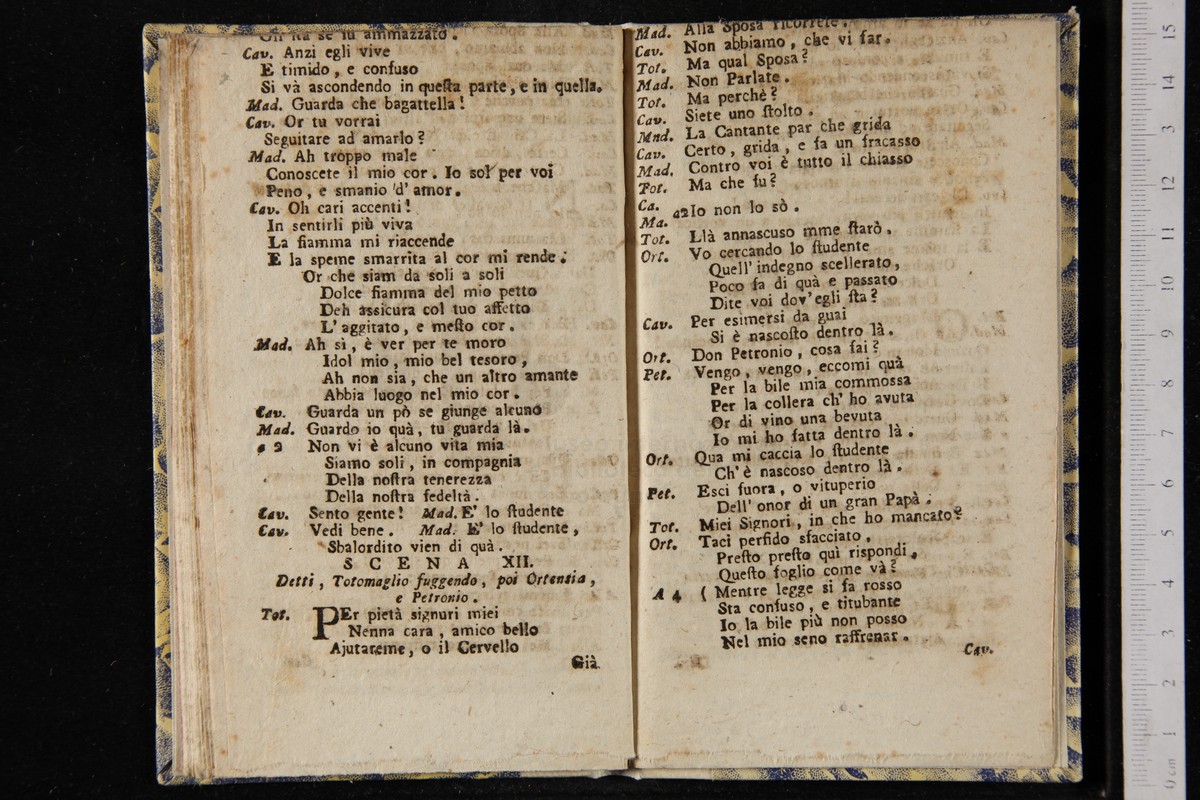 Gli sta se fu ammazzato.
Cav. Anzi egli vive
E timido, e confuso
Si và ascondendo in questa parte, e in quella.
Mad. Guarda che bagattella!
Cav. Or tu vorrai
Seguitare ad amarlo?
Mad. Ah troppo male
Conoscete il mio cor. Io sol per voi
Peno, e smanio d'amor.
Cav. Oh cari accenti!
In sentirli più viva
La fiamma mi riaccende
E la speme smarrita al cor mi rende.
Or che siam da soli a soli
Dolce fiamma del mio petto
Deh assicura col tuo affetto
L'aggitato, e mesto cor.
Mad. Ah sì, è ver per te moro
Idol mio, mio bel tesoro,
Ah non sia, che un altro amante
Abbia luogo nel mio cor.
Cav. Guarda un pò se giunge alcuno
Mad. Guardo io quà, tu guarda là.
a 2 Non vi è alcuno vita mia
Siamo soli, in compagnia
Della nostra tenerezza
Della nostra fedeltà.
Cav. Sento gente! Mad. E' lo studente
Cav. Vedi bene. Mad. E' lo studente,
Sbalordito vien di quà.
SCENA XII.
Detti, Totomaglio fuggendo, poi Ortensia,
e Petronio.
Tot. PEr pietà signuri miei
Nenna cara, amico bello
Ajutareme, o il Cervello
Già
Mad. Alla Sposa ricorrete.
Cav. Non abbiamo, che vi far.
Tot. Ma qual Sposa?
Mad. Non Parlate.
Tot. Ma perchè?
Cav. Siete uno stolto.
Mnd. La Cantante par che grida
Cav. Certo, grida, e fa un fracasso
Mad. Contro voi è tutto il chiasso
Tot. Ma che fu?
Ca.
a2 Io non lo sò.
Ma.
Tot. Llà annascuso mme starò.
Ort. Vo cercando lo studente
Quell'indegno scellerato,
Poco fa di quà e passato
Dite voi dov'egli sta?
Cav. Per esimersi da guai
Si è nascosto dentro là.
Ort. Don Petronio, cosa fai?
Pet. Vengo, vengo, eccomi quà
Per la bile mia commossa
Per la collera ch'ho avuta
Or di vino una bevuta
Io mi ho fatta dentro là.
Ort. Qua mi caccia lo studente
Ch'è nascoso dentro là.
Pet. Esci fuora, o vituperio
Dell'onor di un gran Papà.
Tot. Miei Signori, in che ho mancato?
Ort. Taci perfido sfacciato,
Presto presto quì rispondi,
Questo foglio come và?
A 4 ( Mentre legge si fa rosso
Sta confuso, e titubante
Io la bile più non posso
Nel mio seno raffrenar.
Cav.
15
14
13
12
11
10
9
8
7
6
5
4
3
2
1
0 cm